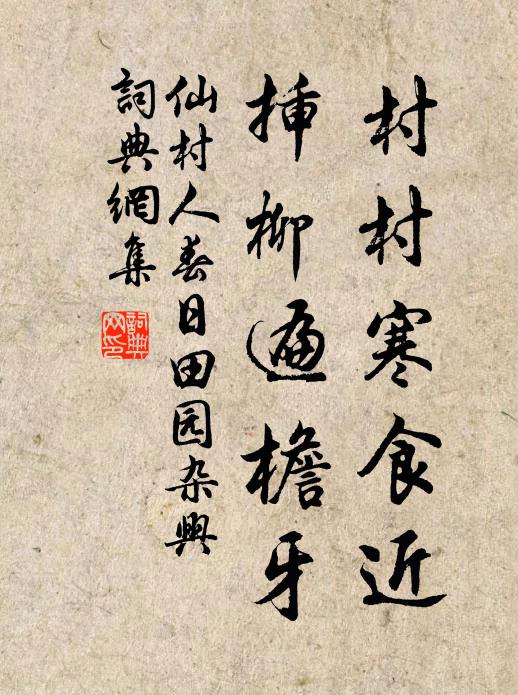 村村寒食近
插柳遍檐牙
仙村人春日田园杂興
詞典網集
詞典网印